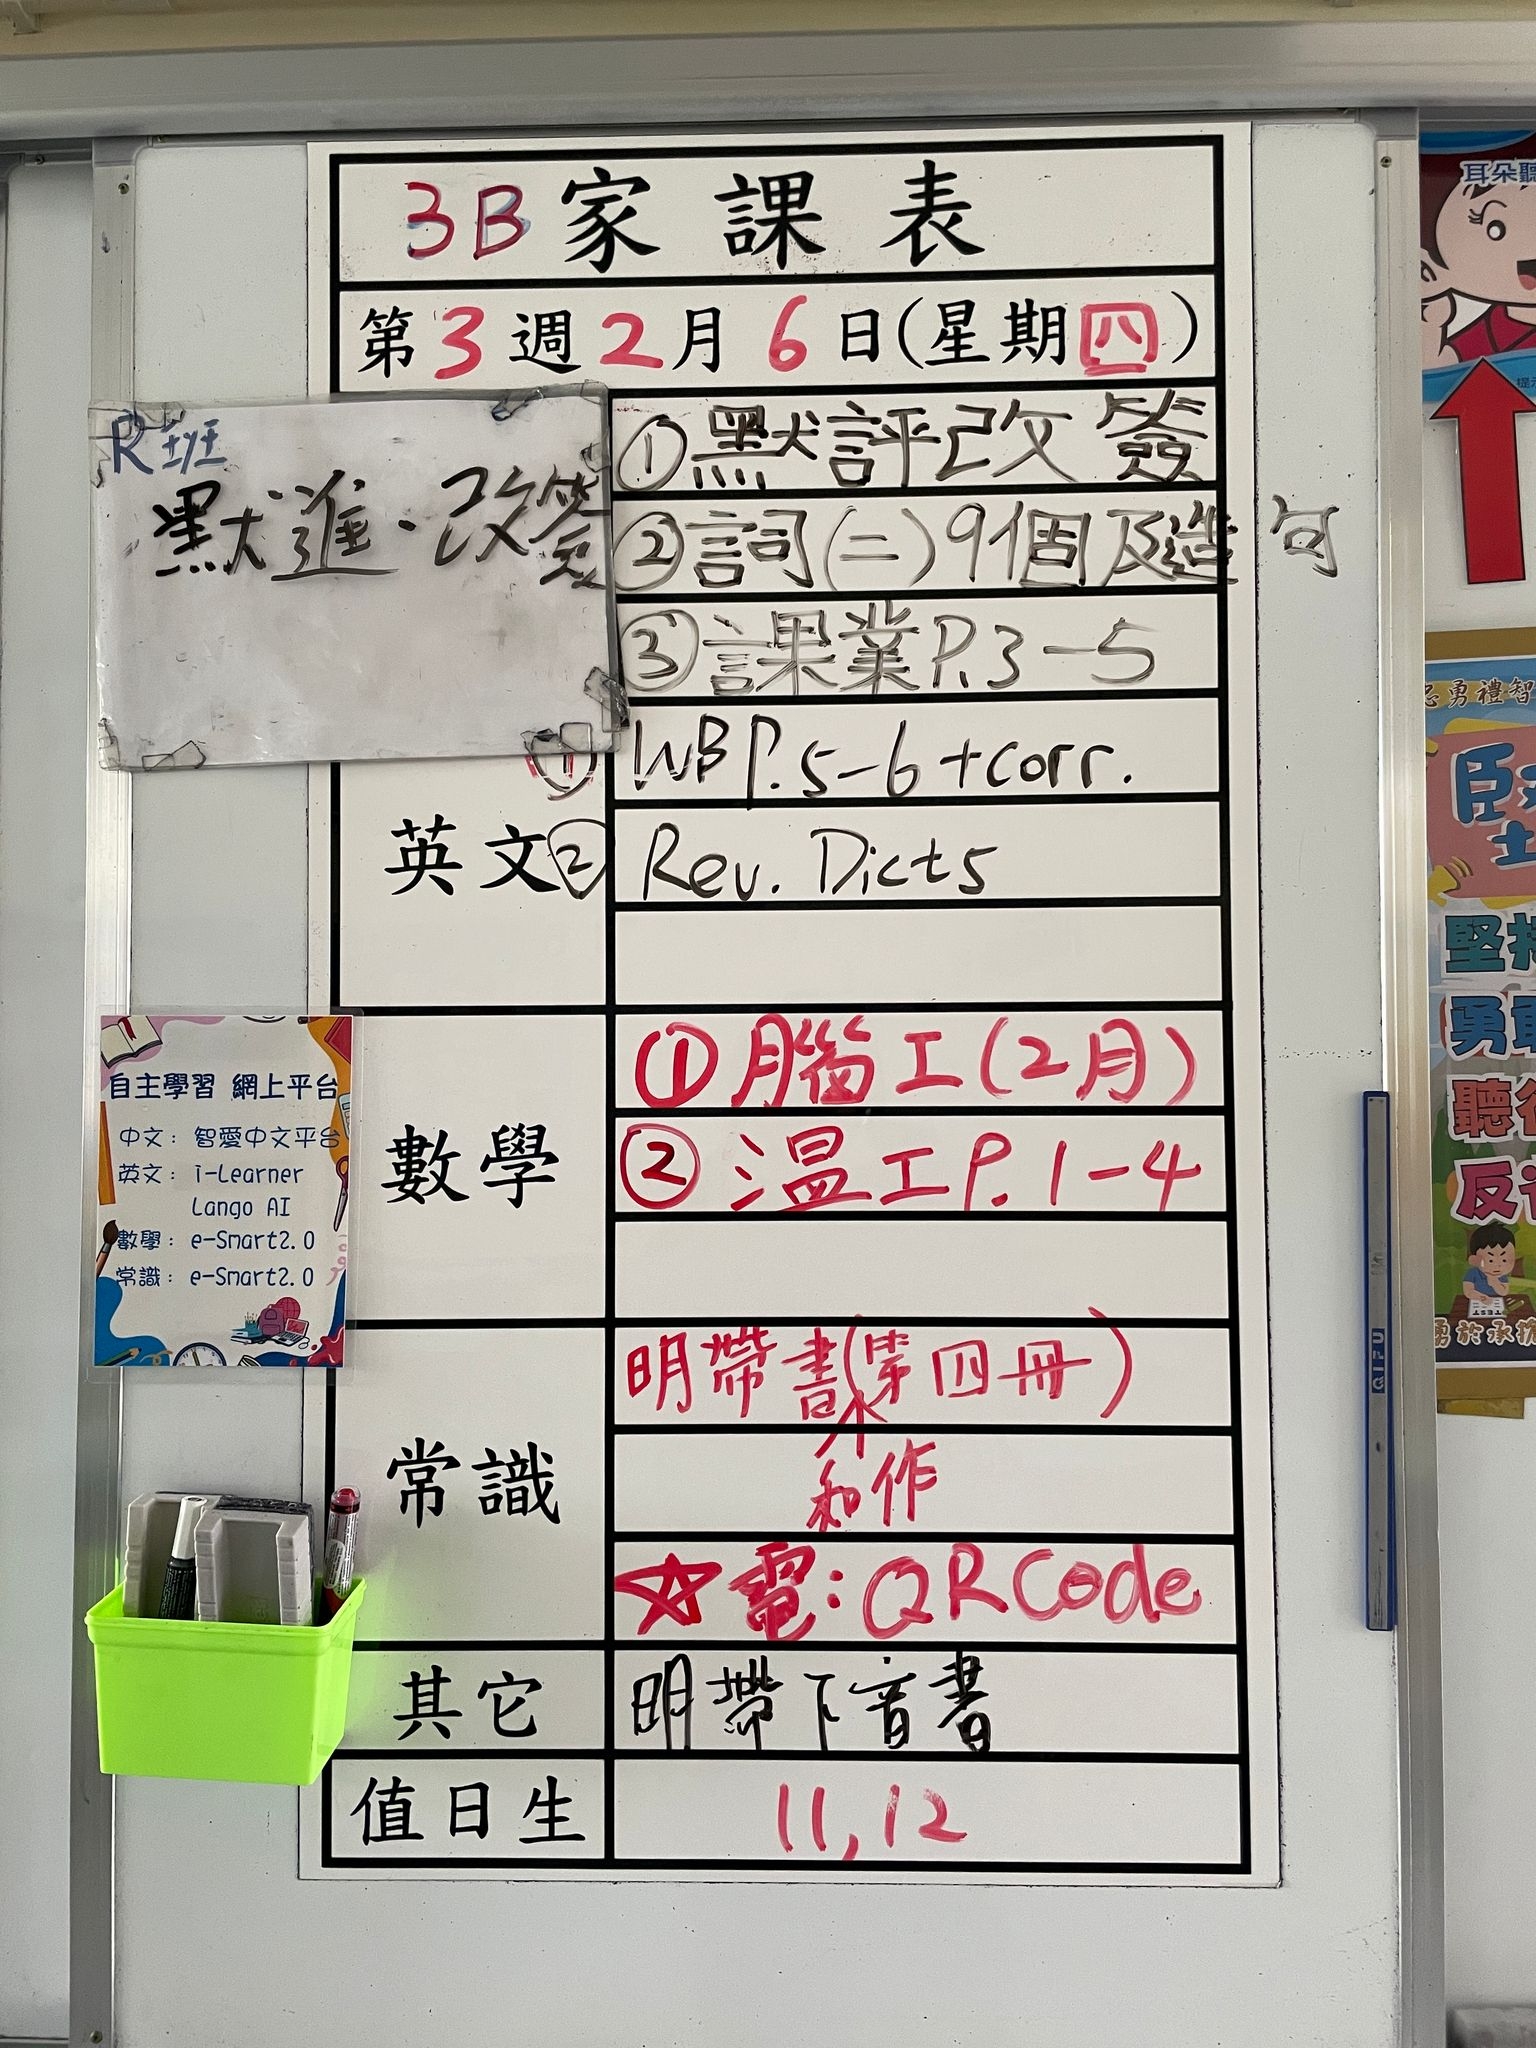 3B家課表
第3週2月6日(星期四)
R班
默進·改簽
①默評改簽
②詞(二)9個及造句
③課業P.3-5
英文
① WB P.5-6+corr.
② Rev. Dict5
數學
①腦工(2月)
②溫工P.1-4
常識
明帶書(第四冊)
和作
☆電:QR Code
其它
明帶下音書
值日生
11,12
自主學習 網上平台
中文: 智愛中文平台
英文: i-Learner
Lango AI
數學: e-Smart2.0
常識: e-Smart2.0
耳朵聽
勇禮智
堅
勇
聽
反
QIFU